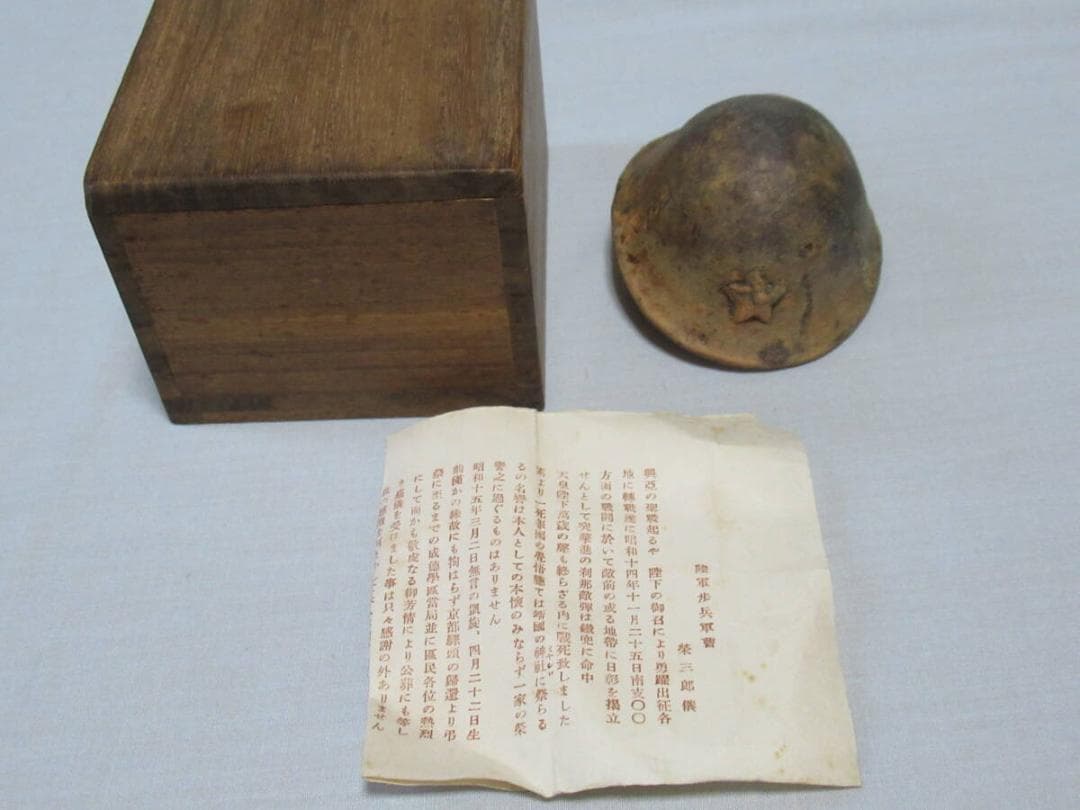 陸軍步兵軍曹
榮三郎儀
興亞の聖戰起るや 陛下の御召により勇躍出征各
地に轉戰遂に昭和十四年十一月二十五日南支〇〇
方面の戰鬪に於いて敵前の或る地帶に日章を揭立
せんとして突進の刹那敵彈は鐵兜に命中
天皇陛下萬歲の聲も終らざる內に戰死致しました
素より一死報國の覺悟にては靖國の神社に祭らる
るの名譽は本人としての本懷のみならず一家の榮
譽之に過ぐるものはありません
昭和十五年三月二日無言の凱旋、四月二十二日生
前僅かの緣故にも拘はらず京都驛頭の歸還より弔
祭に至るまでの成德學區當局並に區民各位の熱烈
にして而かも敬虔なる御芳情により公葬にも等し
き盛儀を受けました事は只々感謝の外ありません